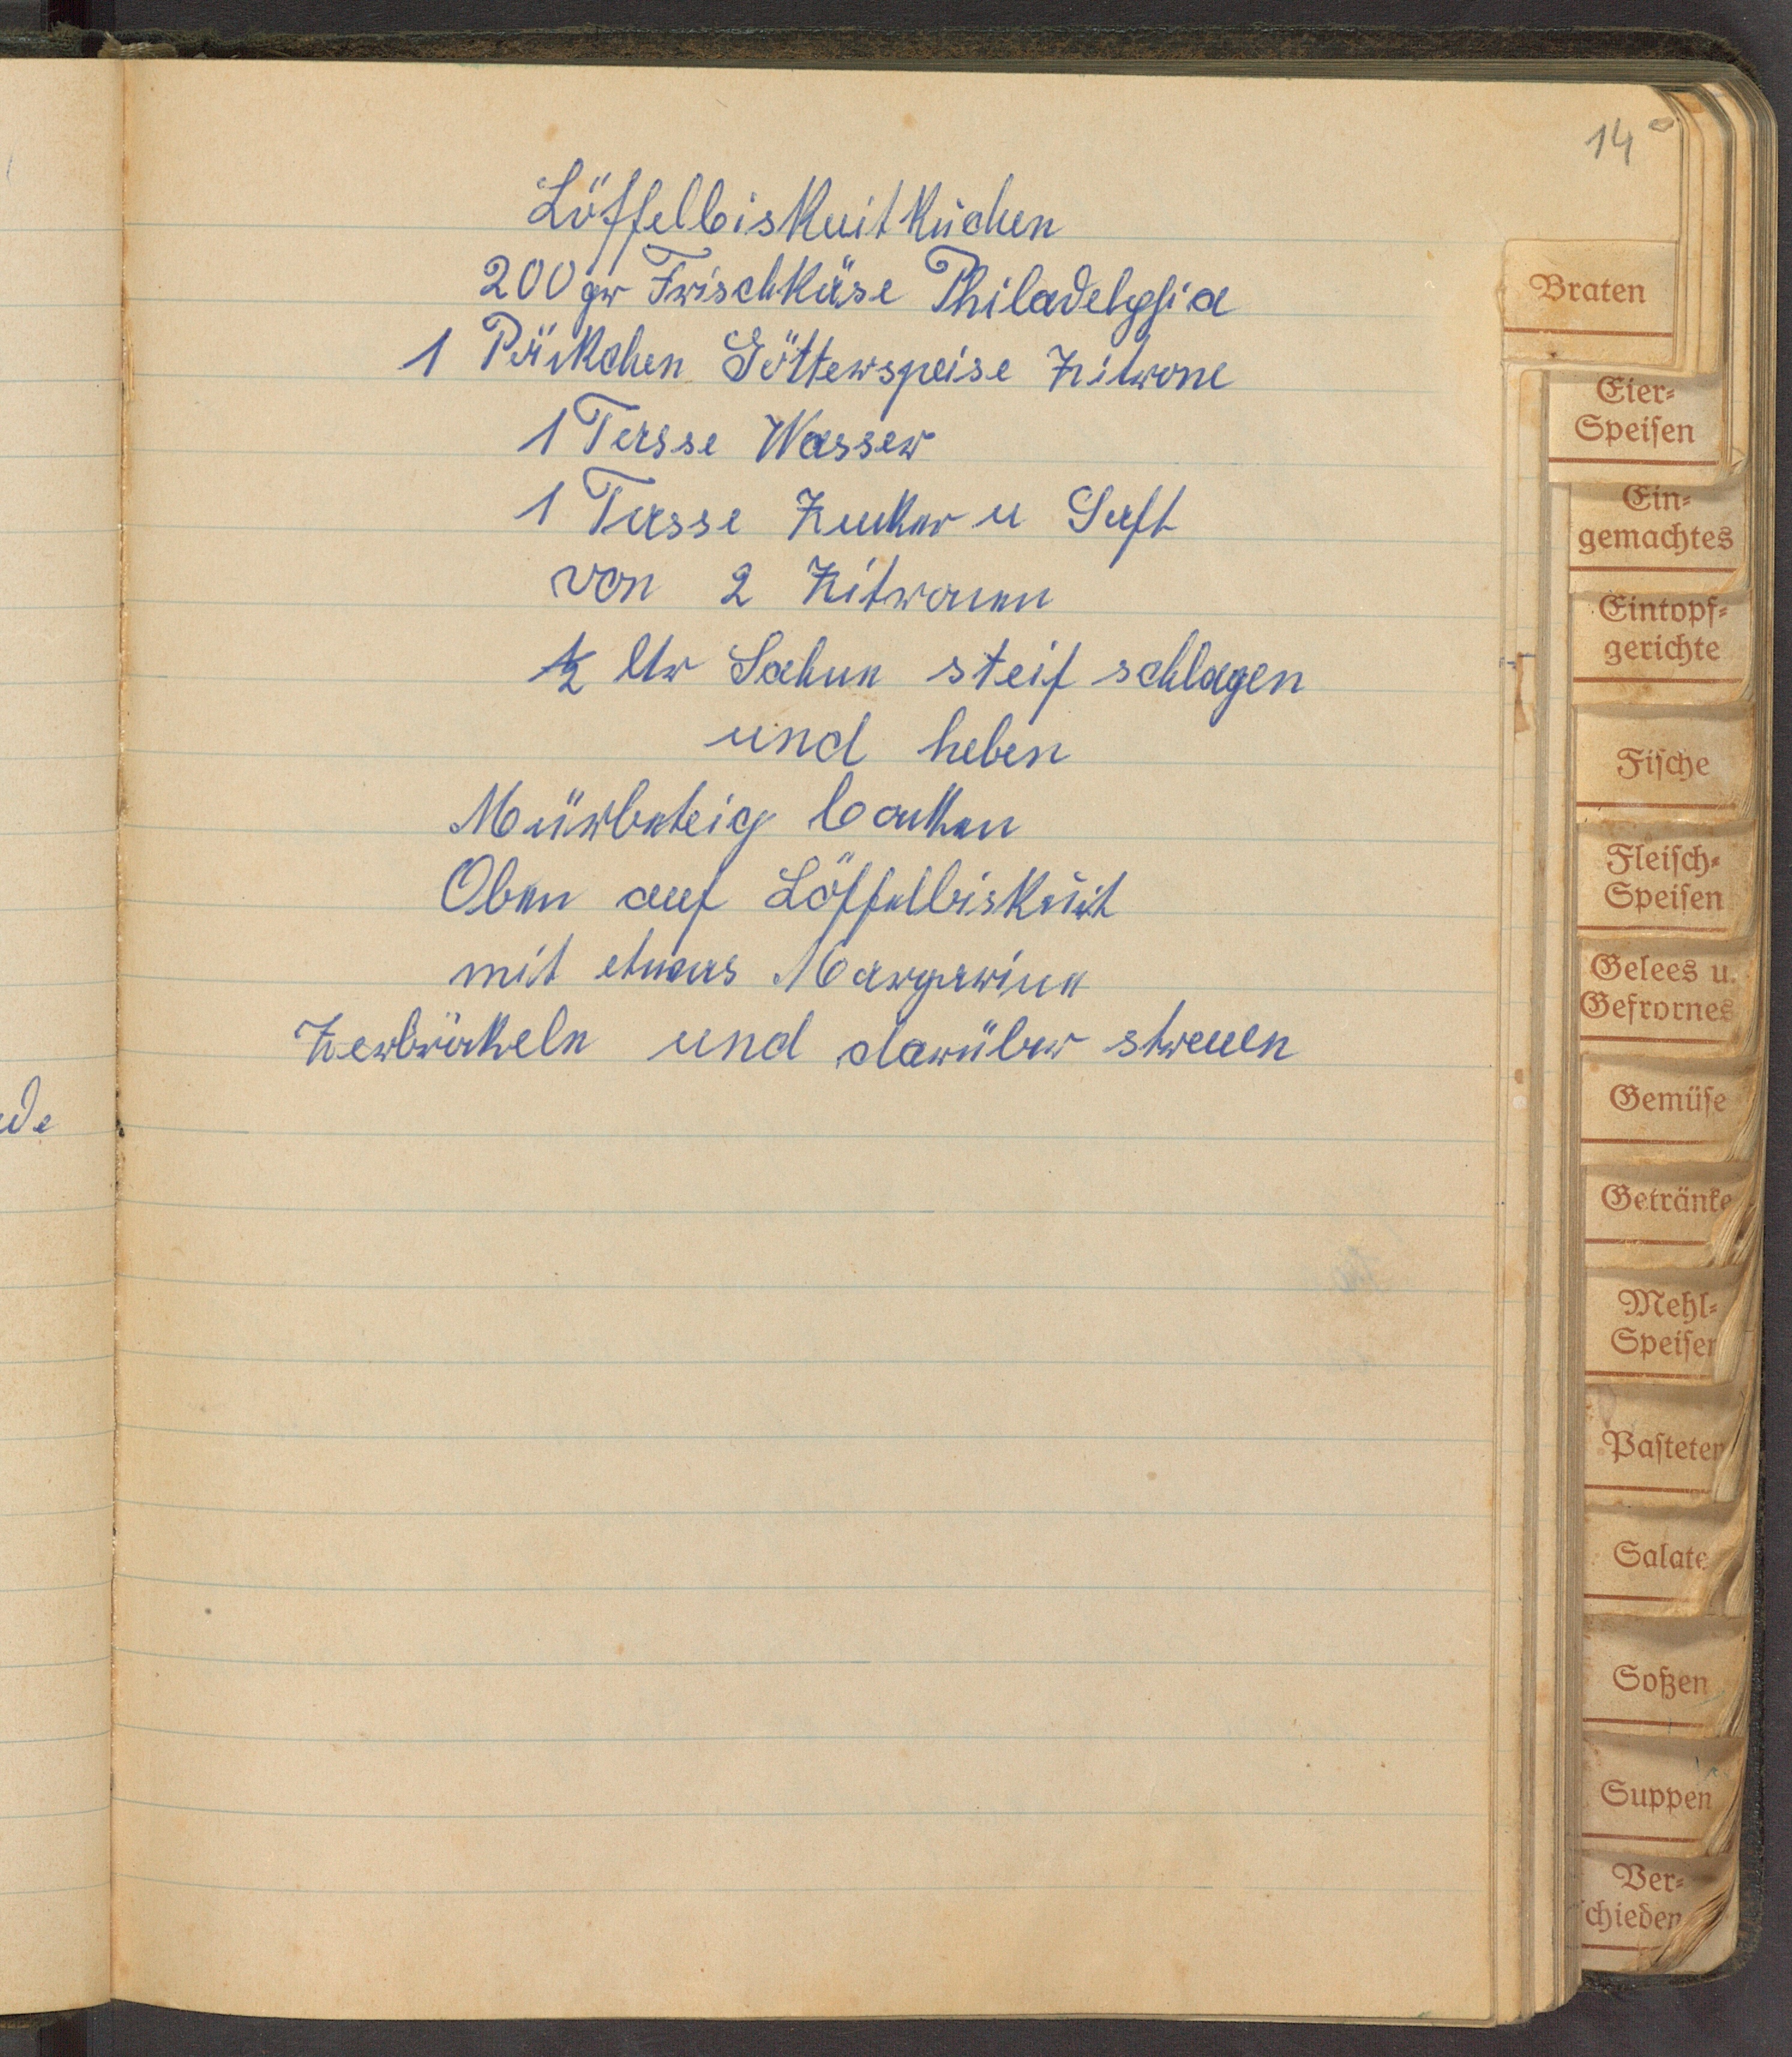 14
Löffelbiskuitkuchen
200 gr Frischkäse Philadelphia
1 Päckchen Götterspeise Zitrone
1 Tasse Wasser
1 Tasse Zucker u Saft
von 2 Zitronen
1/2 ltr Sahne steif schlagen
und heben
Mürbeteig backen
Oben auf Löffelbiskuit
mit etwas Margarine
Zerbröckeln und darüber streuen
Braten
Eier-
Speiſen
Ein-
gemachtes
Eintopf-
gerichte
Fiſche
Fleiſch-
Speiſen
Gelees u.
Gefrornes
Gemüſe
Getränke
Mehl-
Speiſen
Paſteten
Salate
Soßen
Suppen
Ver-
ſchieden